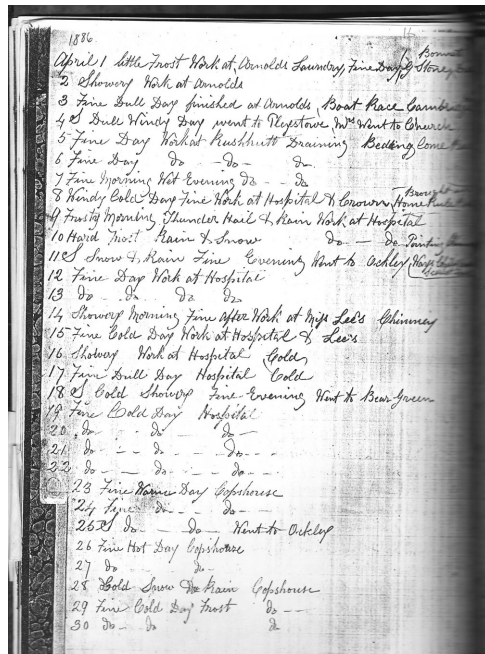 1886
Bonnet
April 1 little Frost Work at Arnolds Laundry, Fine Day, G Stoney
2 Showery Work at Arnolds
3 Fine Dull Day finished at Arnolds, Boat Race Cambr
4 S Dull Windy Day went to Mrs Went to Church
5 Fine Day Work at Draining Bedding Come
6 Fine Day do - do - do.
7 Fine Morning Wet Evening do - - do
Brought
8 Windy Cold Day Fine Work at Hospital & Crown, Home
9 Frosty Morning Thunder Hail & Rain Work at Hospital
10 Hard Frost Rain & Snow do - - do Painting
11 S Snow & Rain Fine Evening Went to Ockley,
12 Fine Day Work at Hospital
13 do - do do do
14 Showery Morning Fine after Work at Miss Lee's Chimney
15 Fine Cold Day Work at Hospital & Lee's
16 Showery Work at Hospital Cold
17 Fine Dull Day Hospital Cold
18 S Cold Showery Fine Evening Went to Bear Green
19 Fine Cold Day Hospital
20 do - - do - - do -
21 do - - do - - do - -
22 do - - do - - do - -
23 Fine Warm Day Copshouse
24 Fine do - - - do
25 S do - - do - Went to Ockley
26 Fine Hot Day Copshouse
27 do - - - do -
28 Cold Snow Rain Copshouse
29 Fine Cold Day Frost do - -
30 do - do do